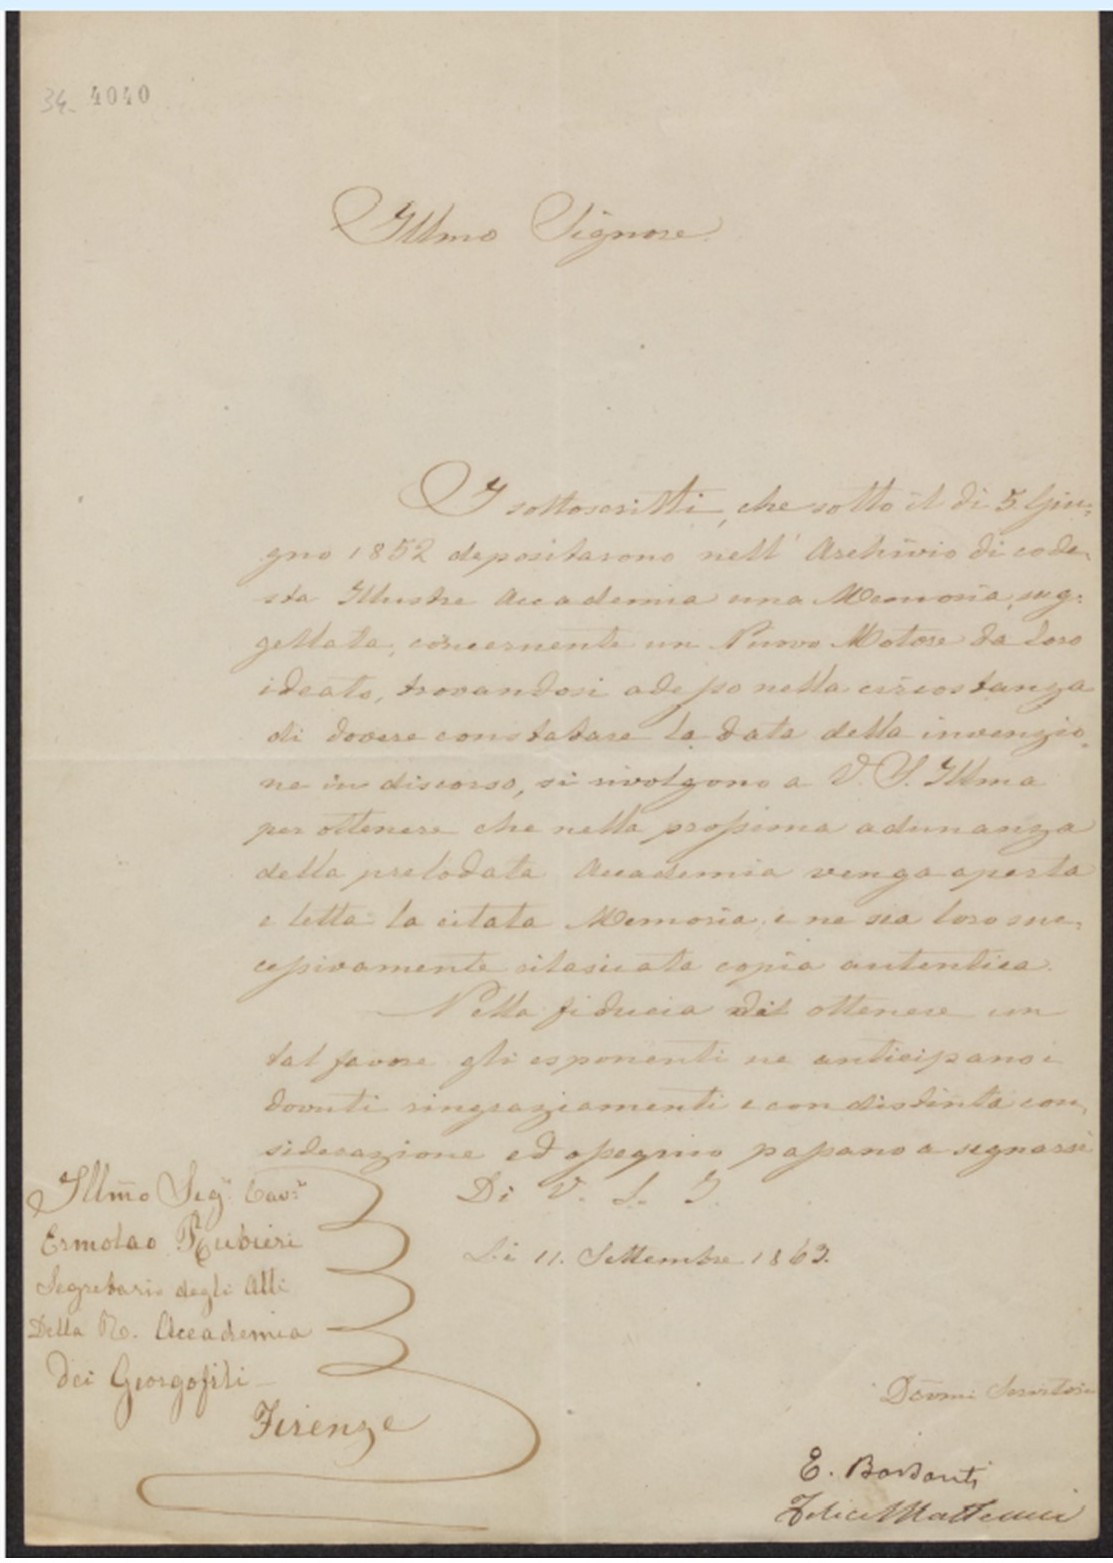 34. 4040
Illmo Signore
I sottoscritti, che sotto il dì 5. Giu:
gno 1852 depositarono nell' Archivio di code-
sta Illustre Accademia una Memoria, sug:
gellata, concernente un Nuovo Motore da loro
ideato, trovandosi adesso nella circostanza
di dovere constatare la data della invenzio-
ne in discorso, si rivolgono a V. S. Illma
per ottenere che nella prossima adunanza
della prelodata Accademia venga aperta
e letta la citata Memoria e ne sia loro suc-
cessivamente rilasciata copia autentica.
Nella fiducia di ottenere un
tal favore gli esponenti ne anticipano i
dovuti ringraziamenti e con distinta con-
siderazione ed ossequio passano a segnarsi
Di V. S. I.
Li 11. Settembre 1863.
Illmo Sigr. Cavr.
Ermolao Rubieri
Segretario degli Atti
Della R. Accademia
dei Georgofili
Firenze
Devmi Servitori
E. Barsanti
Felice Matteucci